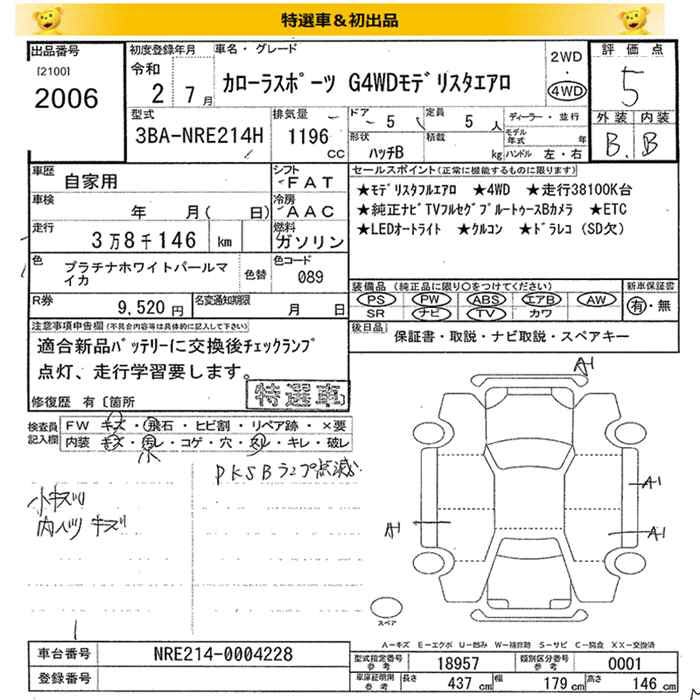 特選車＆初出品
出品番号 [2100] 2006
初度登録年月 令和 2 7月
車名・グレード カローラスポーツ G4WDモデリスタエアロ
2WD・4WD
評価点 5
外装 B. 内装 B
型式 3BA-NRE214H
排気量 1196 CC
ドア 5 定員 5人
形状 ハッチB 積載 kg
ディーラー・並行
モデル年式 年
ハンドル 左・右
車歴 自家用
シフト FAT
車検 年 月( 日)
冷房 AAC
走行 3万8千146 km
燃料 ガソリン
色 プラチナホワイトパールマイカ 色替
色コード 089
R券 9,520円
名変通知期限 月 日
セールスポイント(正常に機能するものに限ります)
★モデリスタフルエアロ ★4WD ★走行38100K台
★純正ナビTVフルセグブルートゥースBカメラ ★ETC
★LEDオートライト ★クルコン ★ドラレコ(SD欠)
装備品 (純正品に限り○をつけてください)
PS PW ABS エアB AW
SR ナビ TV カワ
新車保証書 有・無
後日品 保証書・取説・ナビ取説・スペアキー
注意事項申告欄(不具合内容等は具体的に記入して下さい)
適合新品バッテリーに交換後チェックランプ
点灯、走行学習要します。
特選車
修復歴 有〔箇所
検査員記入欄
FW キズ・飛石・ヒビ割・リペア跡・×要
内装 キズ・汚レ・コゲ・穴・スレ・キレ・破レ
小
PKSBランプ点滅
小キズ
内ハツリ キズ
A1
A1
A1
A1
スペア
A－キズ E－エクボ U－凹み W－補修跡 S－サビ C－腐食 XX－交換済
車台番号 NRE214-0004228
登録番号
型式指定番号 参考 18957
類別区分番号 参考 0001
車庫証明用 参考 長さ 437 cm 幅 179 cm 高さ 146 cm